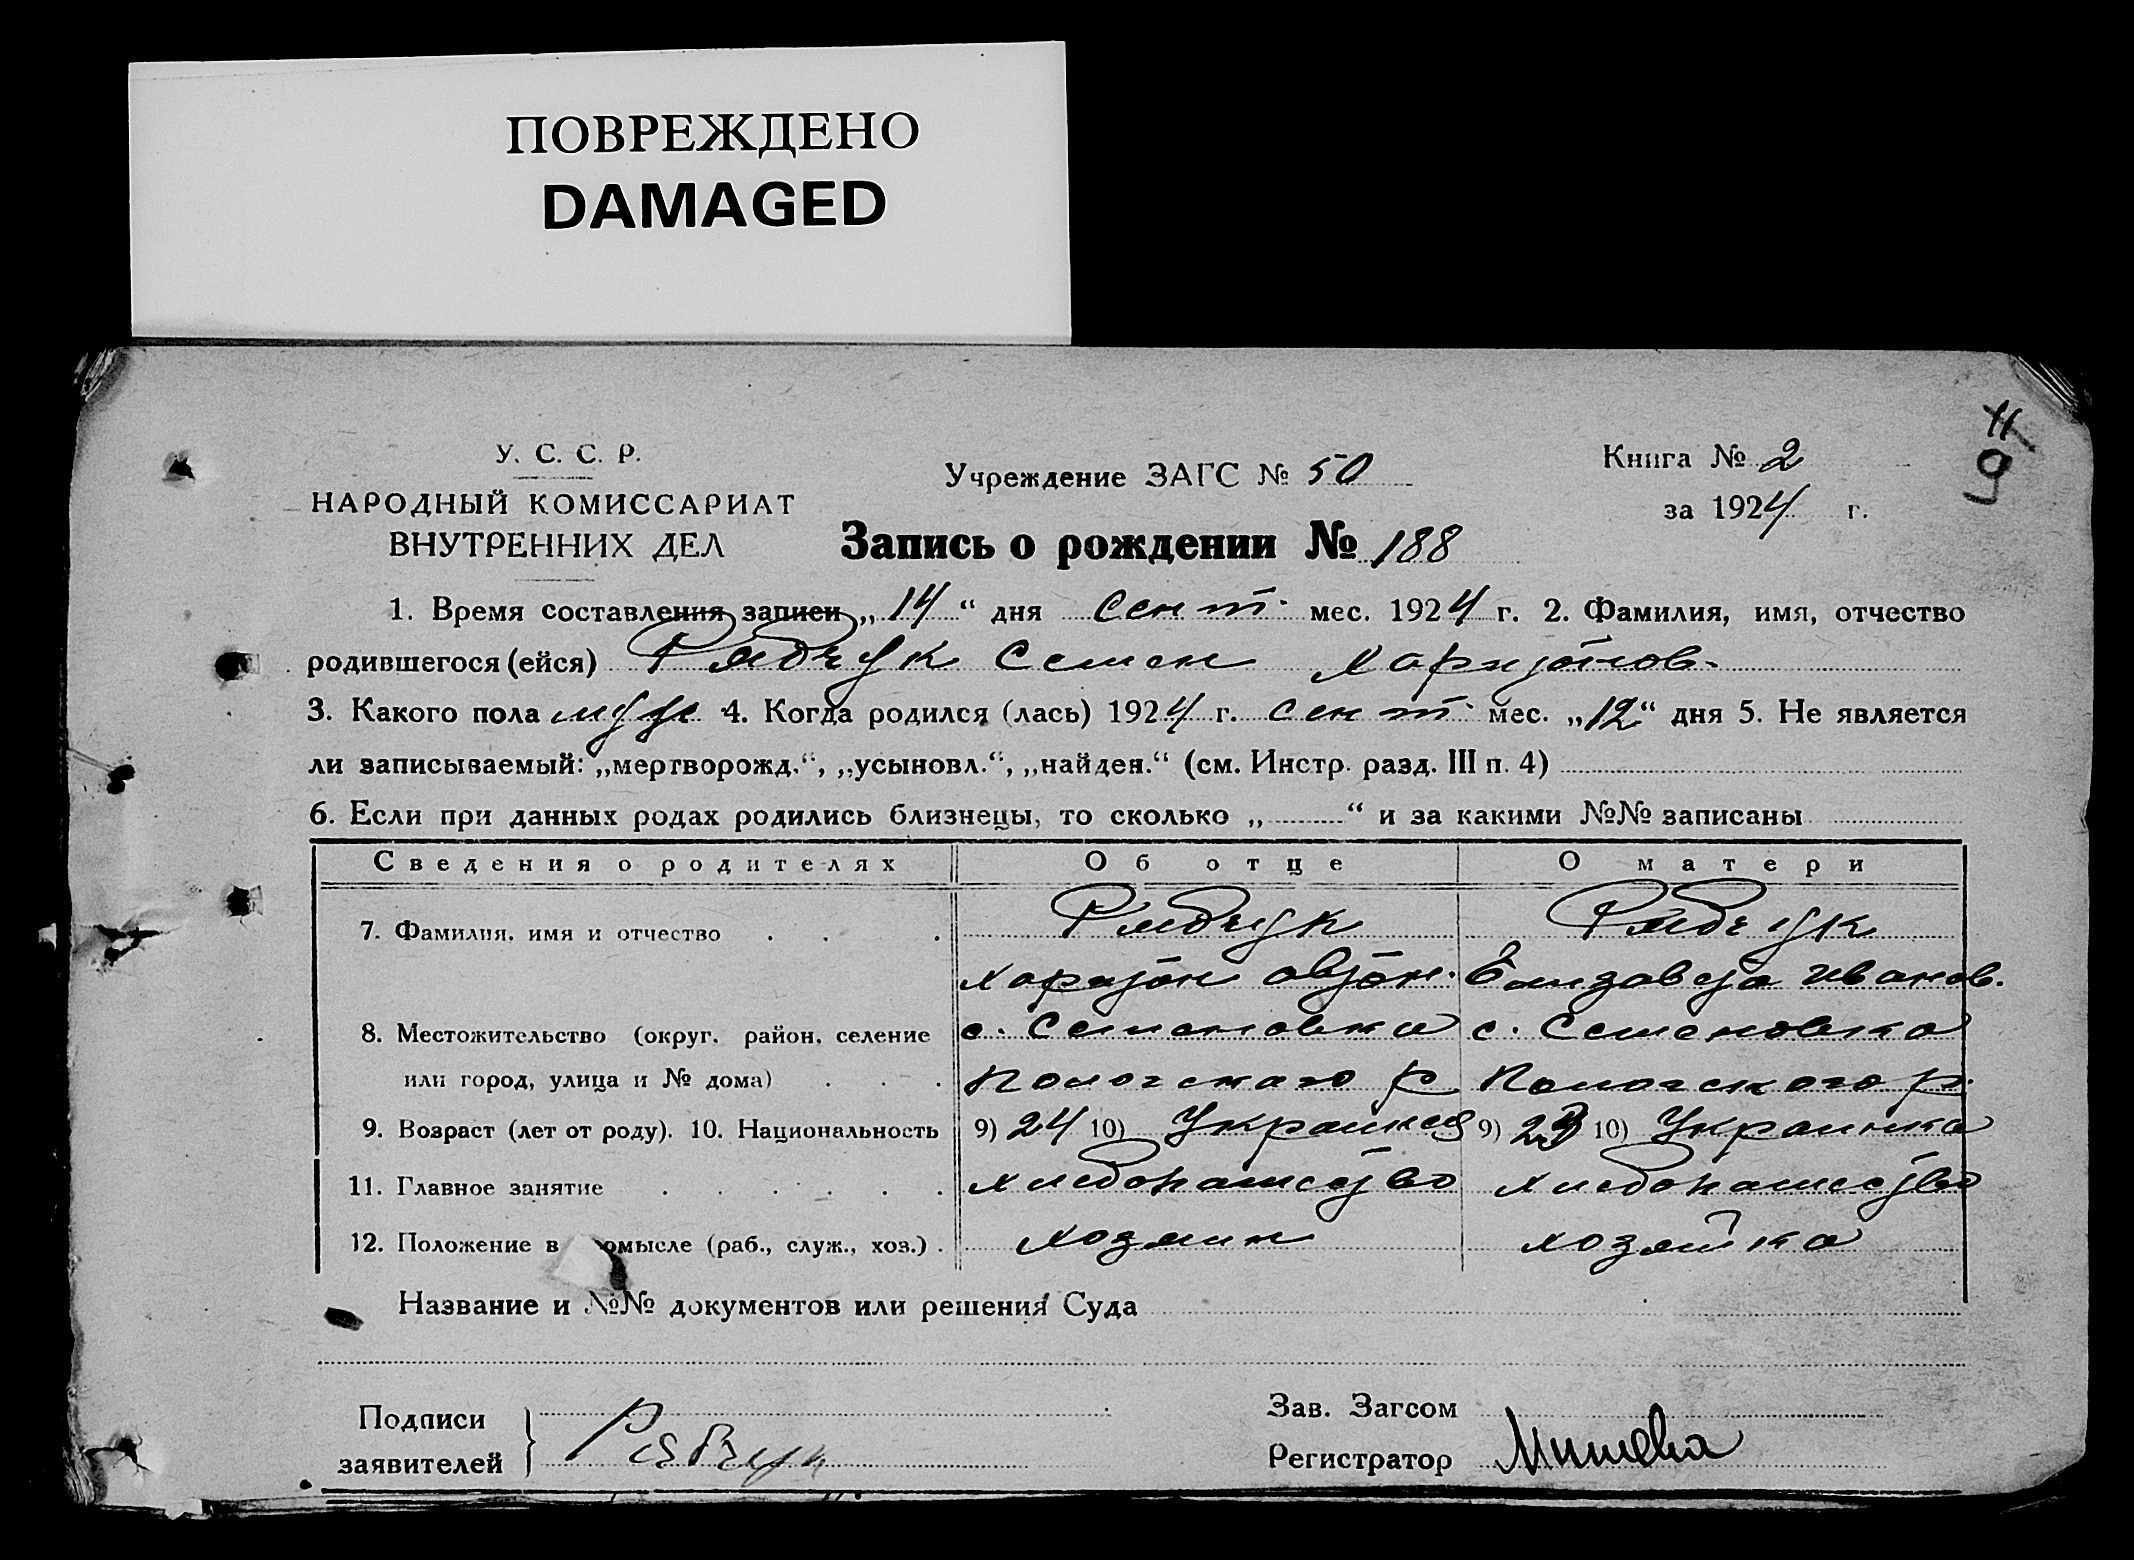 ПОВРЕЖДЕНО
DAMAGED
У. С. С. Р.
НАРОДНЫЙ КОМИССАРИАТ
ВНУТРЕННИХ ДЕЛ
Учреждение ЗАГС № 50
Книга № 2
за 1924 г.
Запись о рождении № 188
1. Время составления записи „14“ дня сент. мес. 1924 г. 2. Фамилия, имя, отчество
родившегося (ейся) Рябчук Семен Харитонов.
3. Какого пола муж 4. Когда родился (лась) 1924 г. сент. мес. „12“ дня 5. Не является
ли записываемый: „мертворожд.“, „усыновл.“, „найден.“ (см. Инстр. разд. III п. 4)
6. Если при данных родах родились близнецы, то сколько „ “ и за какими №№ записаны
Сведения о родителях Об отце О матери
7. Фамилия, имя и отчество Рябчук Рябчук
Харитон Елизавета Иванов.
8. Местожительство (округ, район, селение с. Семеновка с. Семеновка
или город, улица и № дома) Пологского р Пологского р.
9. Возраст (лет от роду). 10. Национальность 9) 24 10) Украинец 9) 23 10) Украинка
11. Главное занятие хлебопашество хлебопашество
12. Положение в омысле (раб., служ., хоз.) хозяин хозяйка
Название и №№ документов или решения Суда
Подписи
заявителей } Рябчук
Зав. Загсом
Регистратор